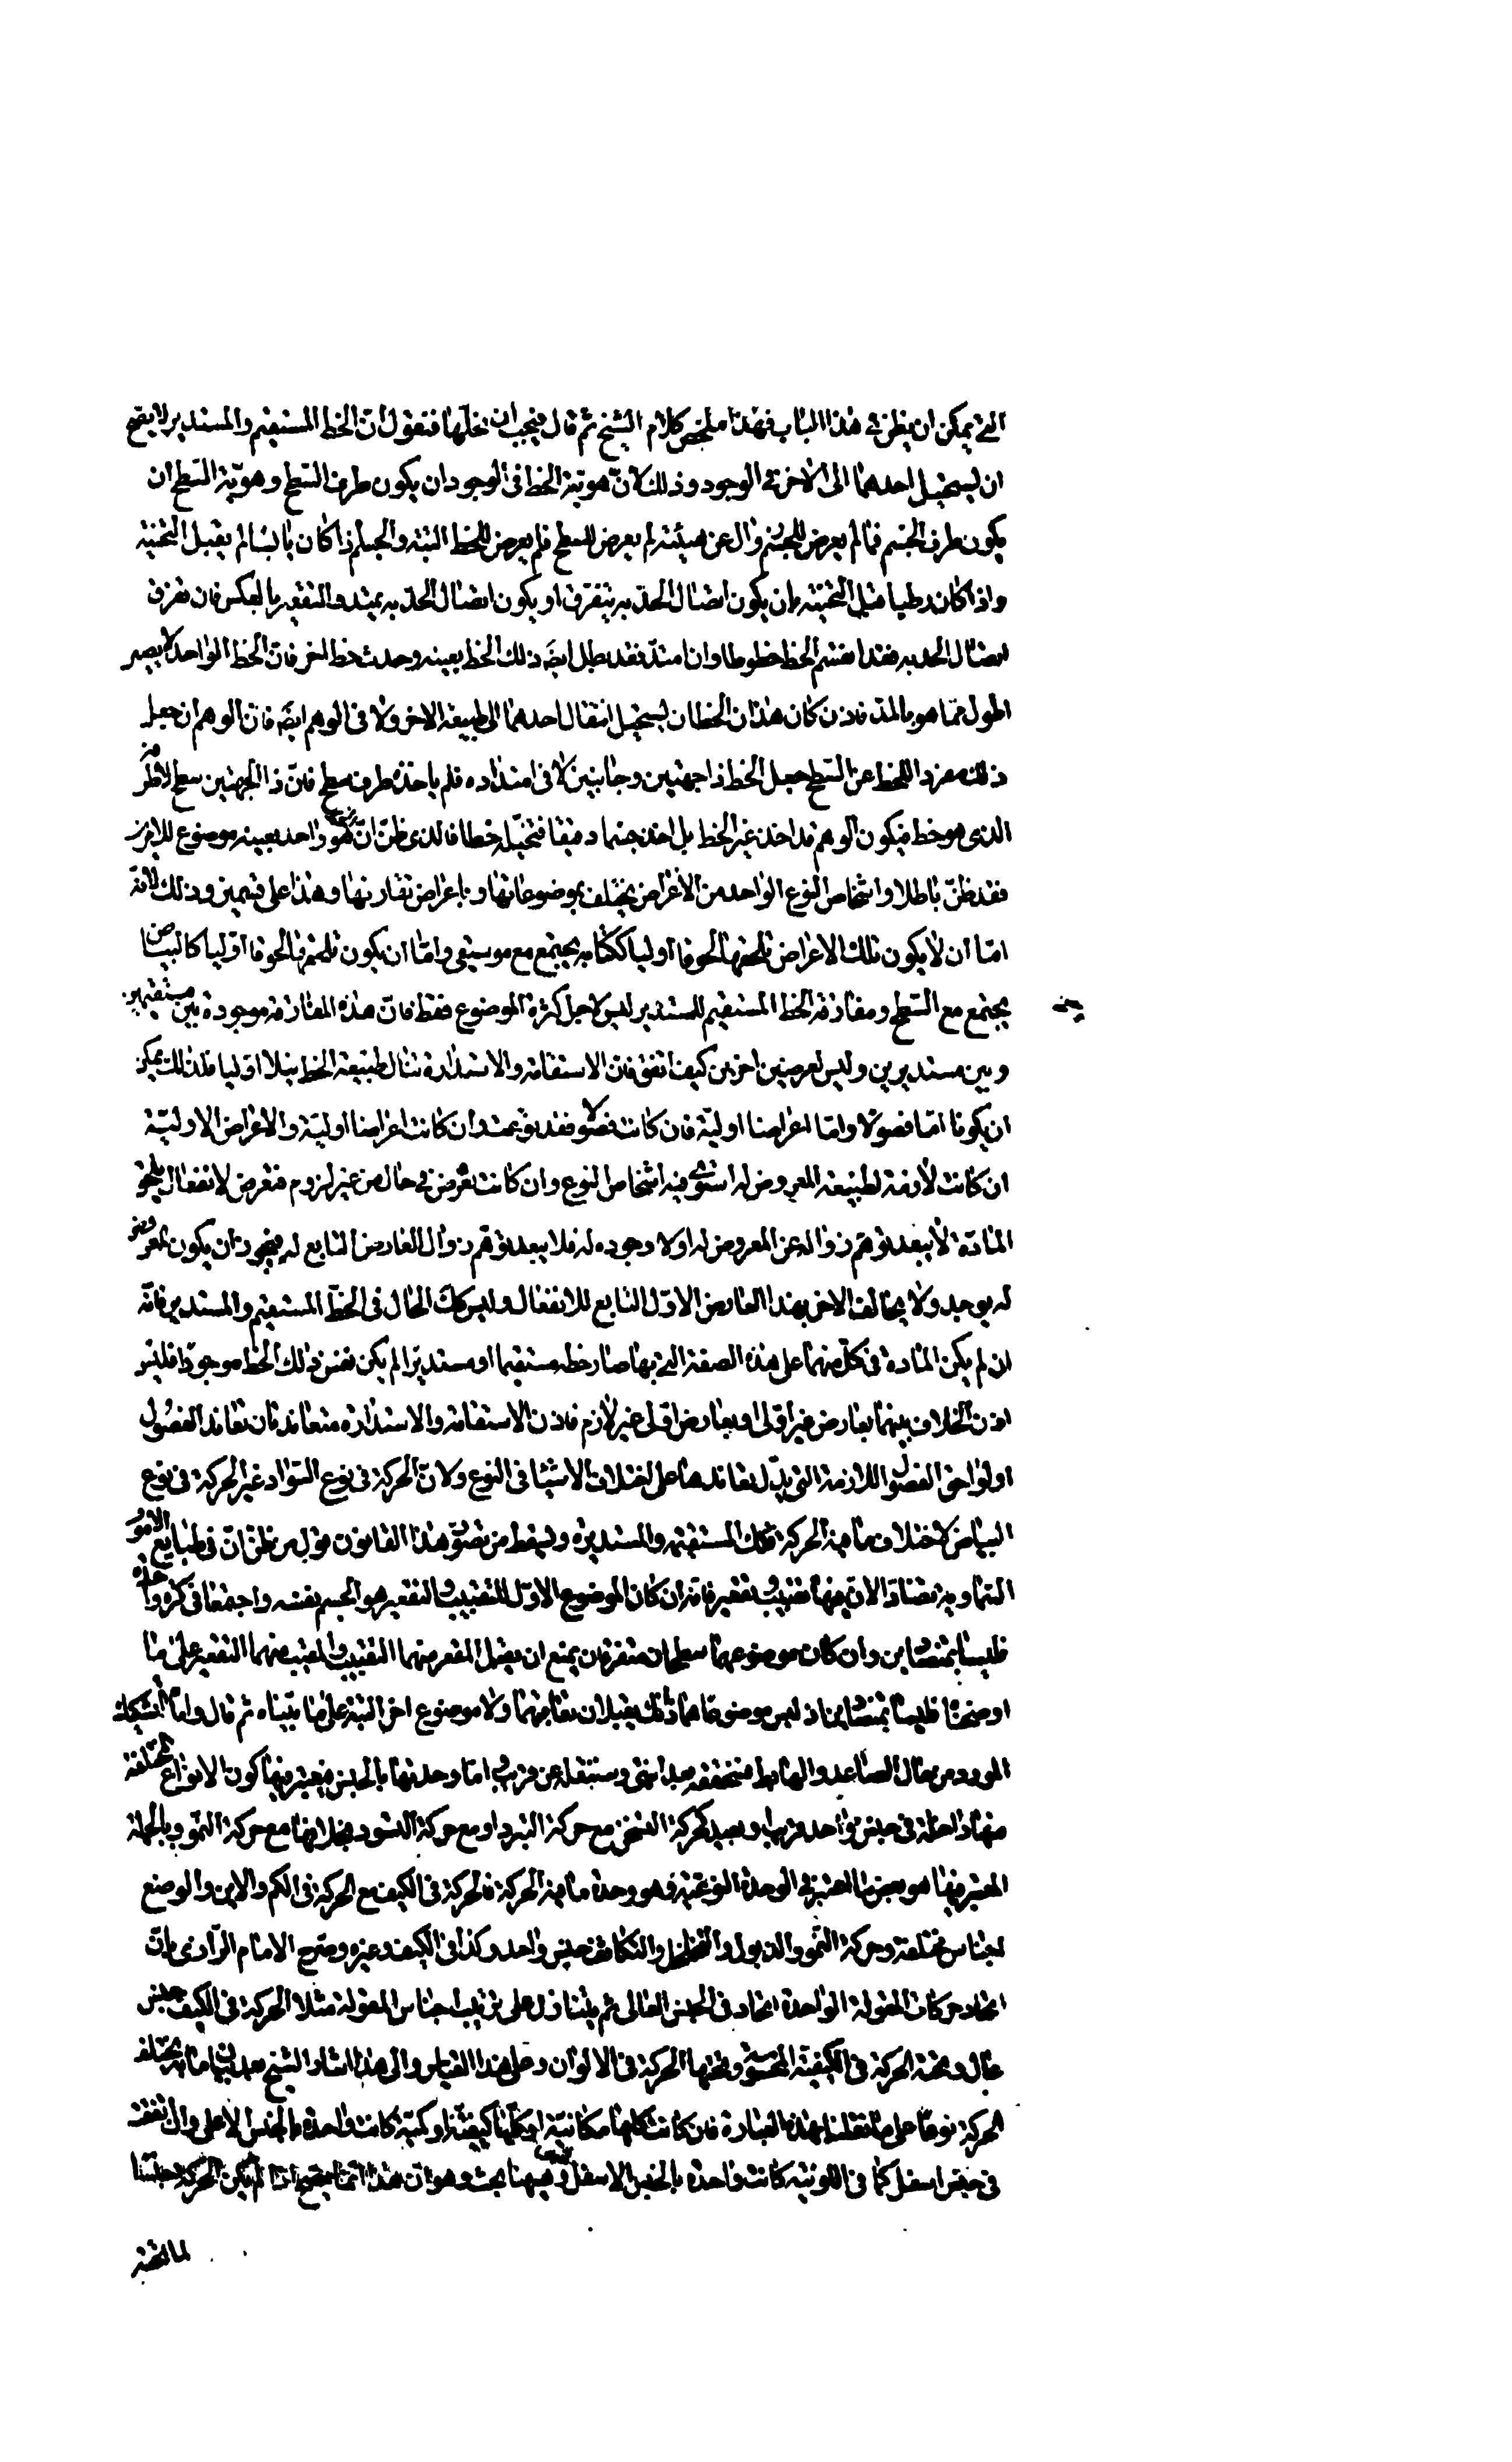 التى يمكن ان يظن فى هذا الباب فهذا ملخص كلام الشيخ ثم قال فيجب ان نحلها فنقول ان الخط المستقيم والمستدير لا يصح
ان يستحيل احدهما الى الاخر فى الوجود وذلك لان هوية الخط فى الوجود ان يكون طرف السطح وهوية السطح ان
يكون طرف الجسم فما لم يعرض للجسم زوال عن هيئته لم يعرض للسطح فلم يعرض للخط البتة والجسم اذا كان يابسا لم يقبل التحنية
واذا كان رطبا قبل التحنية بان يكون اتصال الحدبة يتفرق او يكون اتصال الحدبة يمتد والتقعير بالعكس فان تفرق
اتصال الحدبة فقد انقسم الخط خطوطا وان امتد فقد بطل ايضَ ذلك الخط بعينه وحدث خط اخر فان الخط الواحد لا يصير
اطول مما هو بالمد فاذن كان هذان الخطان يستحيل انتقال احدهما الى طبيعة الاخر ولا فى الوهم ايضَ فان الوهم ان جعل
ذلك مفردا للخط عن السطح جعل الخط ذا جهتين وجانبين لا فى امتداده فلم ياخذه طرف سطح فان ذا الجهتين سطح لا طر
الذى هو خط فيكون الوهم قد اخذ غير الخط بل اخذ جسما دقيقا فتخيله خطا فالذى ظن ان هو واحد بعينه موضوع للامرين
فقد ظن باطلا واشخاص النوع الواحد من الاعراض يختلف بموضوعاتها وباعراض تقارنها وهذا على قسمين وذلك لانه
اما ان لا يكون تلك الاعراض تلحقها لحوقا اوليا ككتابه يجتمع مع موسيقى واما ان يكون تلحقها لحوقا اوليا كالبياض
يجتمع مع السطح ومفارقة الخط المستقيم للمستدير ليس لاجل كثرة الموضوع فقط فان هذه المفارقة موجودة بين مستقيمين
وبين مستديرين وليس لعرضين اخرين كيف اتفق فان الاستقامة والاستدارة تنال طبيعة الخط نيلا اوليا فلذلك يمكن
ان يكونا اما فصولا واما اعراضا اولية فان كانت فصولا فقد نوعت وان كانت اعراضا اولية والاعراض الاولية
ان كانت لازمة لطبيعة المعروض له استوى فيه اشخاص النوع وان كانت تعرض فى حال من غير لزوم فتعرض لانفعال يلحق
المادة لا يبعد توهم زواله عن المعروض له اولا وجوده له فلا يبعد توهم زوال العارض التابع له فيجوز ان يكون المعروض
له يوجد ولا يخالف الاخر بهذا العارض الاول التابع للانفعال وليس كك الحال فى الخط المستقيم والمستدير فانه
ان لم يكن المادة فى كل منهما على هذه الصفة التى بها صار خطه مستقيما او مستديرا لم يكن نفس ذلك الخط موجودا فليس
اذن الخلاف بينهما بعارض غير اولى او بعارض اولى غير لازم فاذن الاستقامة والاستدارة متعاندتان تعاند الفصول
او لواحق الفصول اللازمة التى يدل تعاندها على اختلاف الاشيا فى النوع ولان الحركة فى نوع السواد غير الحركة فى نوع
البياض لاختلاف ما فيه الحركة فكك المستقيمة والمستديرة ويسقط من تصور هذا القانون قول من ظن ان فى طبايع الامور
السماوية تضادا لان فيها تقبيبا وتقعيرا فانه ان كان الموضوع الاول للتقبيب والتقعير هو الجسم بنفسه واجتمعا فى كرة واحدة
فليسا بمتضادين وان كان موضوعهما سطحان متفرقان يمتنع ان يقبل المقعر منهما التقبيب والمقبب منهما التقعير على ما
اوضحنا فليسا بمتضادين اذ ليس موضوعاهما ذلك يقبلان تعاقبهما ولا موضوع اخر البتة على ما بيناه ثم قال واما التشكيك
المورد من حال الصاعد والهابط فتحققه بعد شئ وستنقله عن قريب اما وحدتها بالجنس فيعتبر فيها كون الانواع المختلفة
منها داخلة فى جنس واحد قريب او بعيد كحركة التسخن مع حركة التبرد او مع حركة التسود بخلافها مع حركة النمو وبالجملة
المعتبر فيها هو بعض ما اعتبر فى الوحدة النوعية وهو وحدة ما فيه الحركة فالحركة فى الكيف مع الحركة فى الكم والاين والوضع
اجناس مختلفة وحركة النمو والذبول والتخلخل والتكاثف جنس واحد وكذا فى الكيف وغيره وصرح الامام الرازى بان
اتحاد حركات المقولة الواحدة اتحاد فى الجنس العالى ثم يتنازل على ترتيب اجناس المقولة مثلا الحركة فى الكيف جنس
عال وتحته الحركة فى الكيفية المحسوسة وتحتها الحركة فى الالوان وعلى هذا القياس والى هذا اشار الشيخ بعد بيان ما به يختلف
الحركة نوعا على ما نقلنا بهذه العبارة فان كانت كلها مكانية او كلها كيفية او كمية كانت واحدة بالجنس الاعلى وان اتفقت
فى جنس اسفل كما فى اللونية كانت واحدة بالجنس الاسفل وهيهنا بحث وهو ان هذا انما يصح اذا لم يكن الحركة جنسا
لما تحته